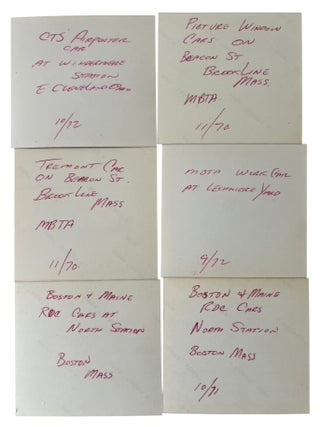 CTS AIRPORTER
CAR
AT WINDERMERE
STATION
E CLEVELAND OHIO
10/72
PICTURE WINDOW
CARS ON
BEACON ST
BROOKLINE
MASS
MBTA
11/70
TREMONT CAR
ON BEACON ST.
BROOKLINE
MASS
MBTA
11/70
MBTA WORK CAR
AT LECHMERE YARD
9/72
BOSTON & MAINE
RDC CARS AT
NORTH STATION
BOSTON
MASS
BOSTON & MAINE
RDC CARS
NORTH STATION
BOSTON MASS
10/71